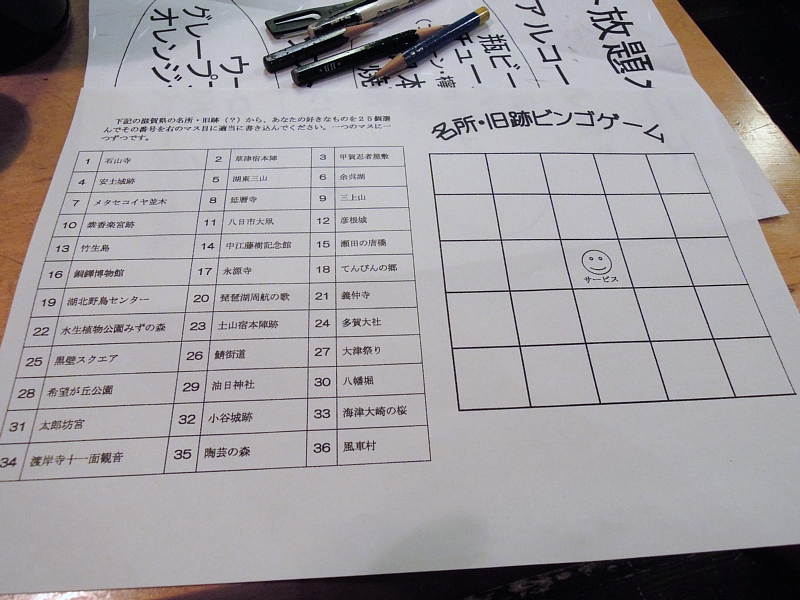 放題
アルコー
瓶ビー
チュー
ウー
グレープフ
オレンジ
下記の滋賀県の名所・旧跡（？）から、あなたの好きなものを２５個選
んでその番号を右のマス目に適当に書き込んでください。一つのマスに一
つずつです。
名所・旧跡ビンゴゲーム
1 石山寺 2 草津宿本陣 3 甲賀忍者屋敷
4 安土城跡 5 湖東三山 6 余呉湖
7 メタセコイヤ並木 8 延暦寺 9 三上山
10 紫香楽宮跡 11 八日市大凧 12 彦根城
13 竹生島 14 中江藤樹記念館 15 瀬田の唐橋
16 銅鐸博物館 17 永源寺 18 てんびんの郷
19 湖北野鳥センター 20 琵琶湖周航の歌 21 義仲寺
22 水生植物公園みずの森 23 土山宿本陣跡 24 多賀大社
25 黒壁スクエア 26 鯖街道 27 大津祭り
28 希望が丘公園 29 油日神社 30 八幡堀
31 太郎坊宮 32 小谷城跡 33 海津大崎の桜
34 渡岸寺十一面観音 35 陶芸の森 36 風車村
サービス